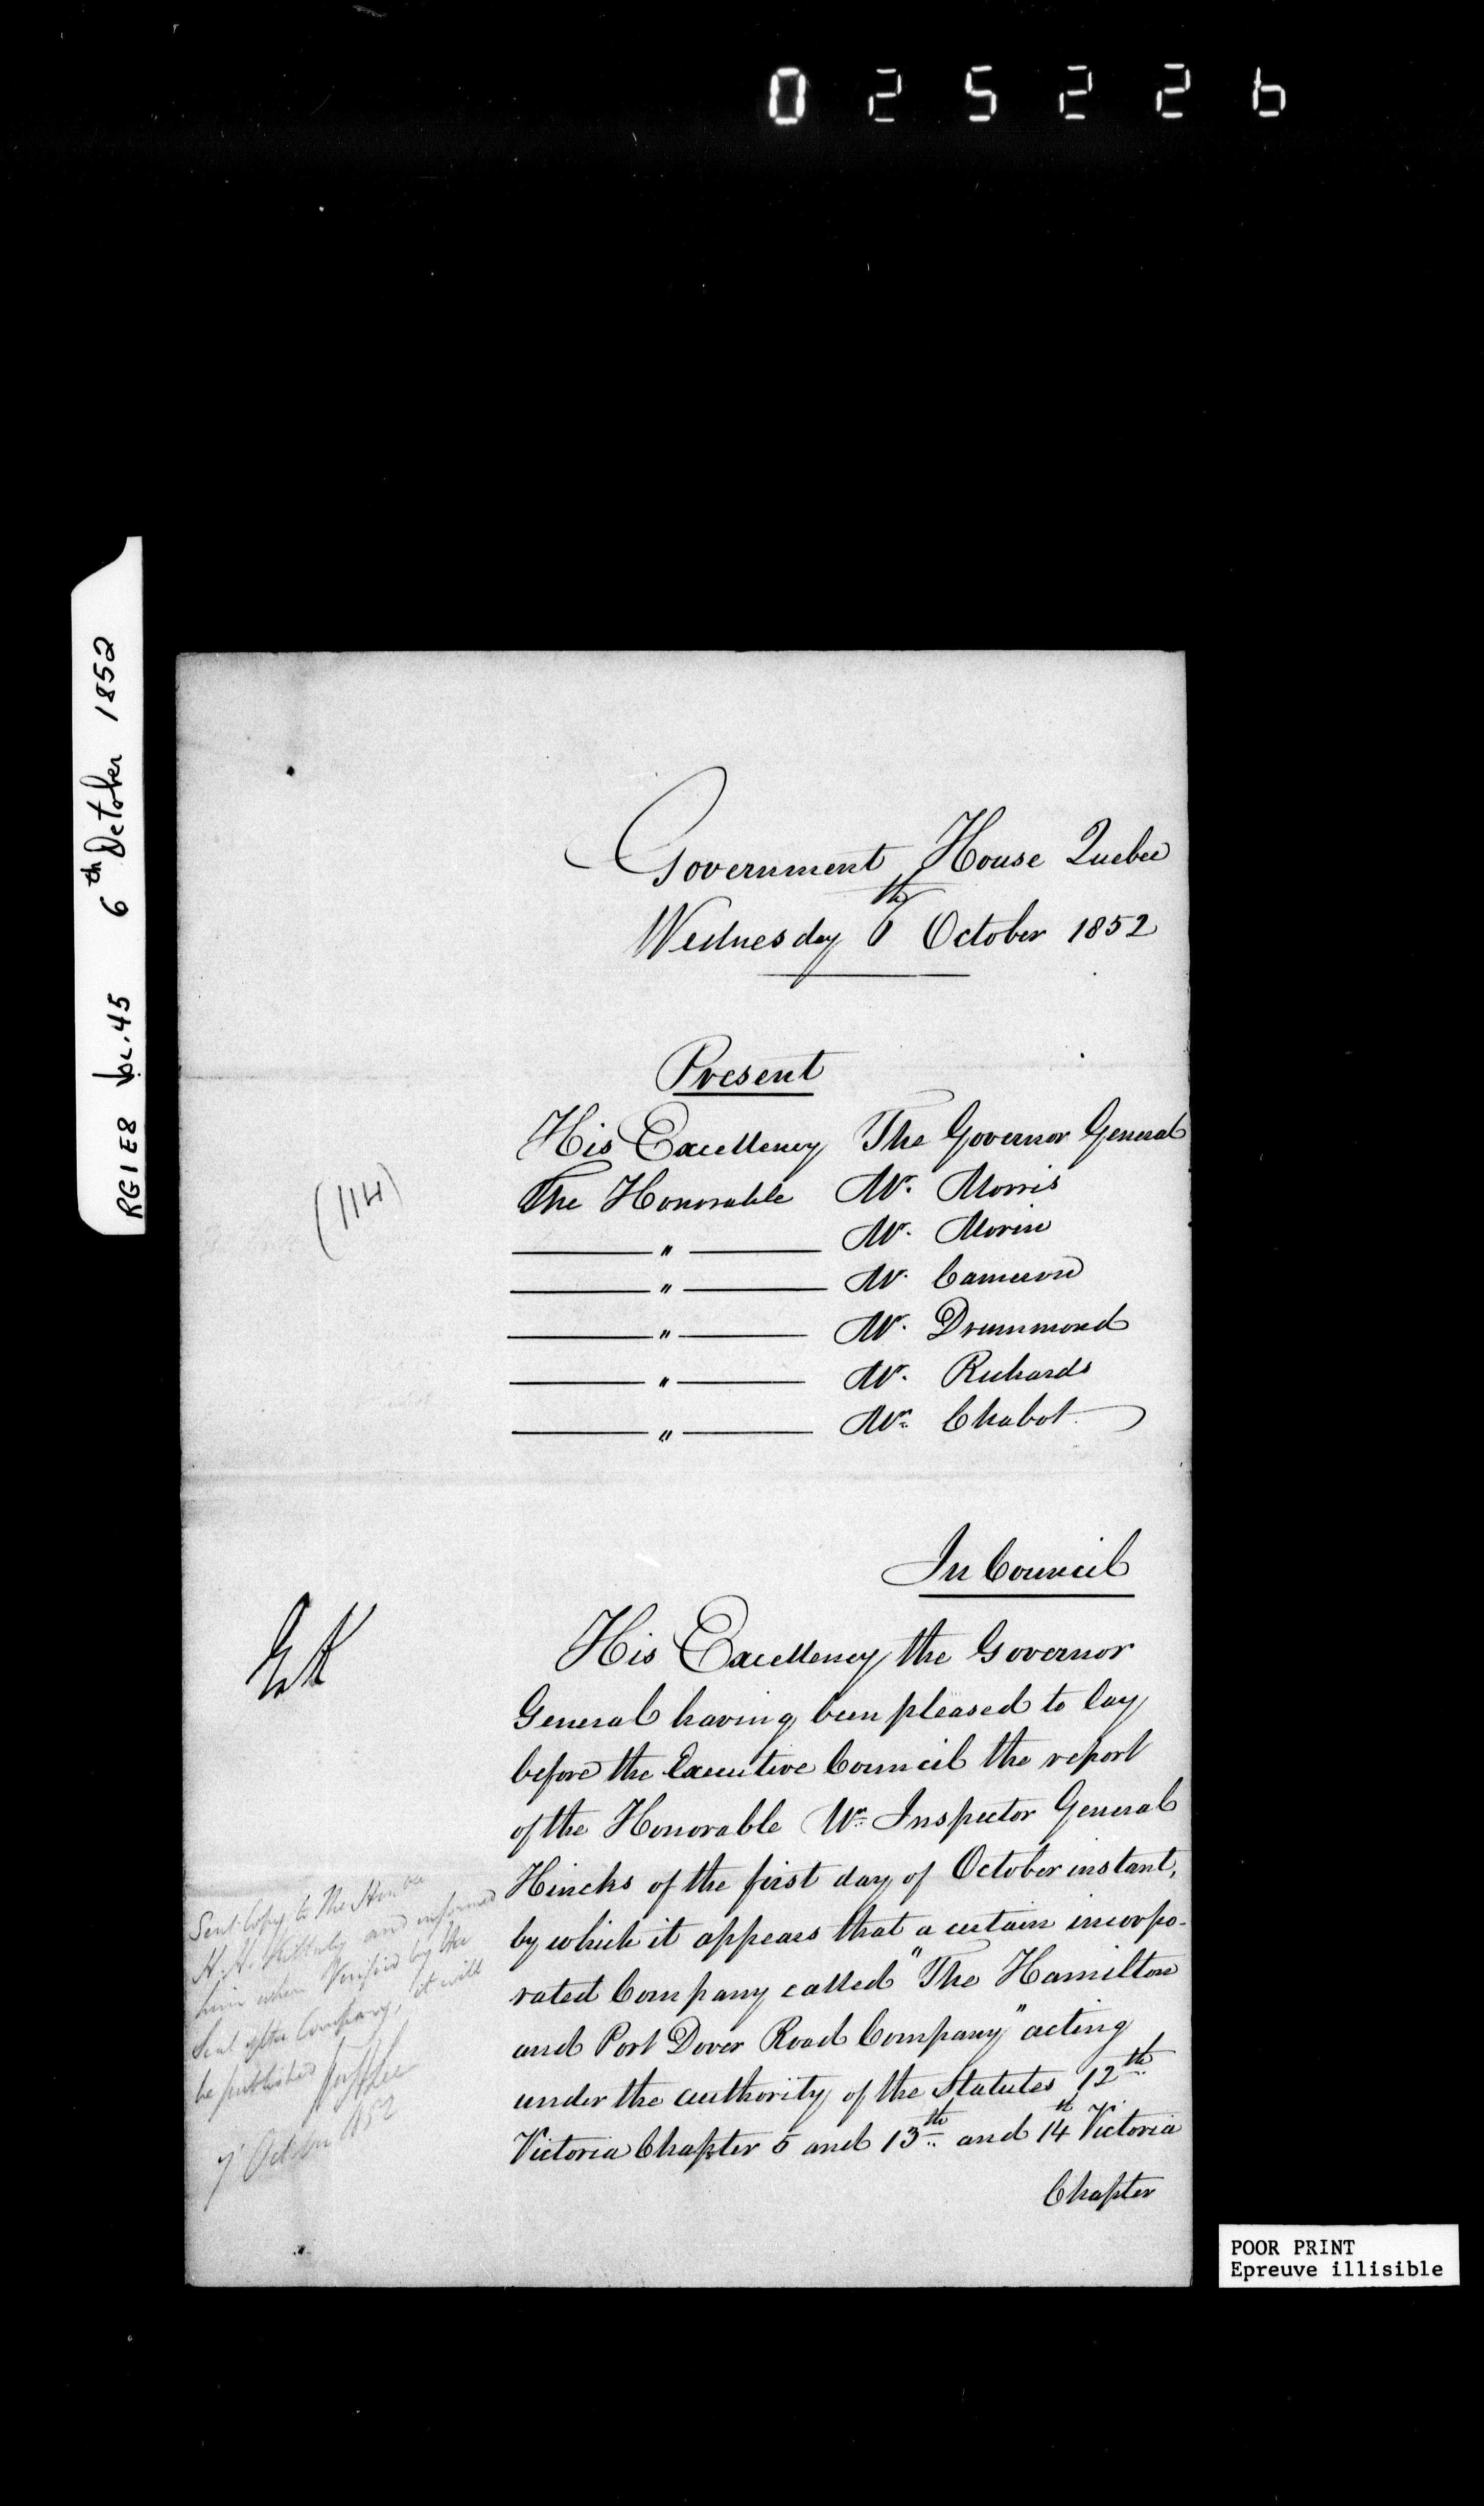 025226
RG1E8 Vol. 45 6th October 1852
Government House Quebec
Wednesday 6th October 1852
Present
His Excellency The Governor General
The Honorable Mr. Morris
" Mr. Morin
(114)
" Mr. Cameron
" Mr. Drummond
" Mr. Richards
" Mr. Chabot
In Council
His Excellency the Governor
General having been pleased to lay
before the Executive Council the report
of the Honorable Mr. Inspector General
Hincks of the first day of October instant,
by which it appears that a certain incorpo-
rated Company called "The Hamilton
and Port Dover Road Company" acting
under the authority of the Statutes 12th
Victoria Chapter 5 and 13th and 14th Victoria
Chapter
Sent Copy to The Honble
H. H. Killaly and informed
him when Verified by the
Seal of the Company, it will
be published
7 October 1852
POOR PRINT
Epreuve illisible